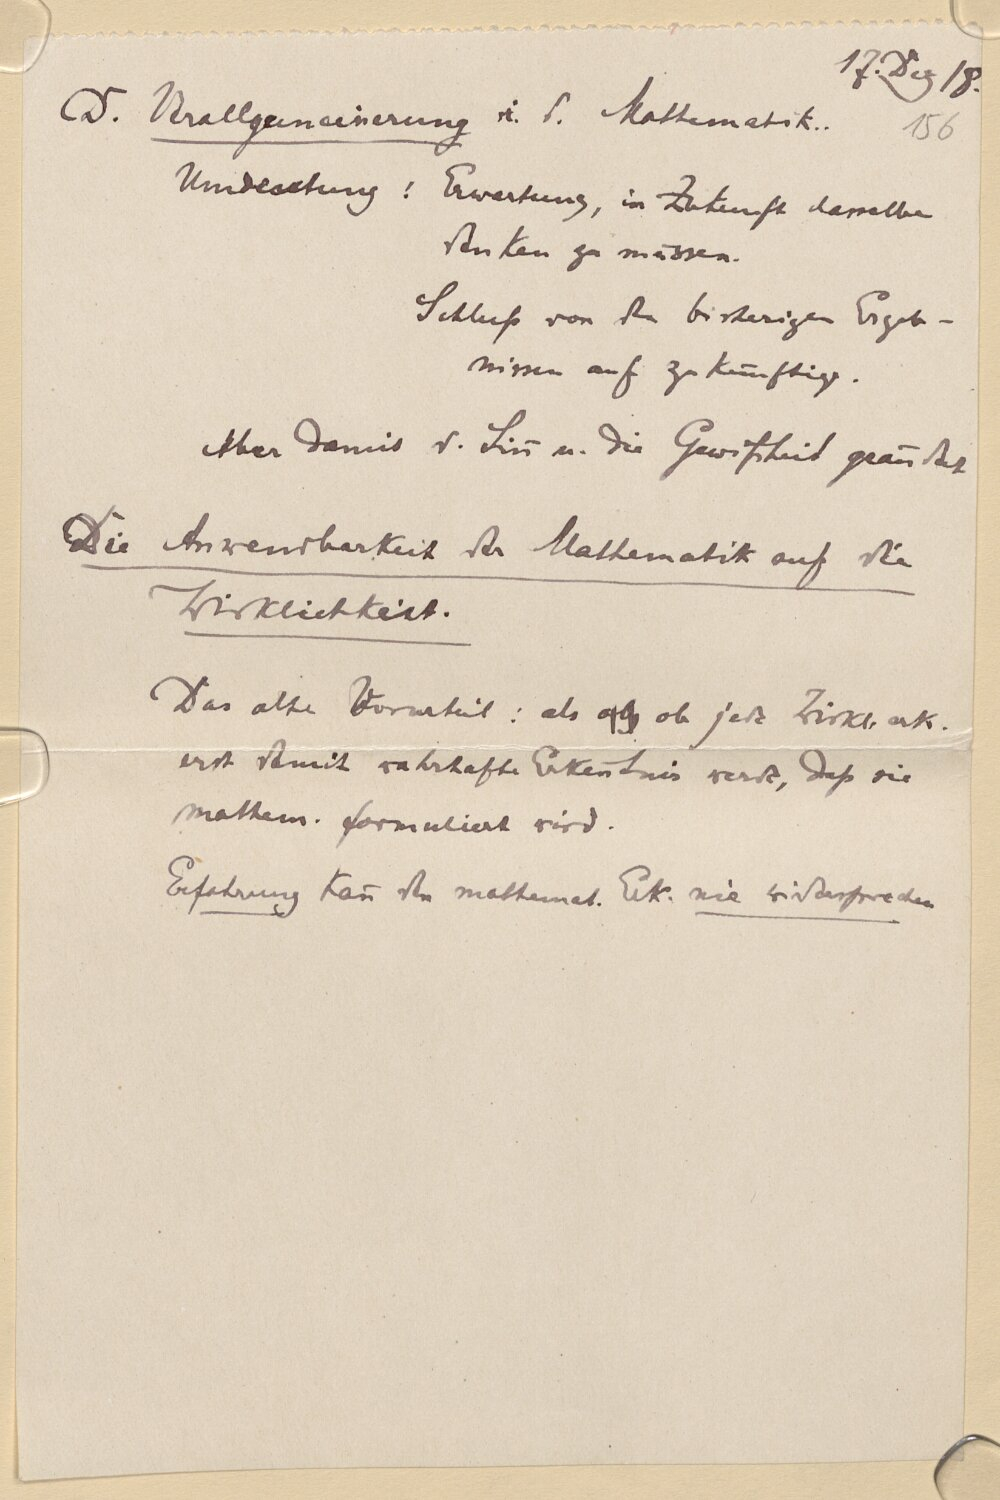 17. Dez 18.
156
D. Verallgemeinerung i. d. Mathematik..
Umdeutung: Erwartung, in Zukunft dasselbe
denken zu müssen.
Schluß von den bisherigen Ergeb-
nissen auf zukünftige.
Aber damit d. Sin̄ u. die Gewißheit geändert
Die Anwendbarkeit der Mathematik auf die
Wirklichkeit.
Das alte Vorurteil: als ob jede Wirkl. erk.
erst damit wahrhafte Erken̄tnis werde, daß sie
mathem. formuliert wird.
Erfahrung kan̄ den mathemat. Erk. nie widersprechen